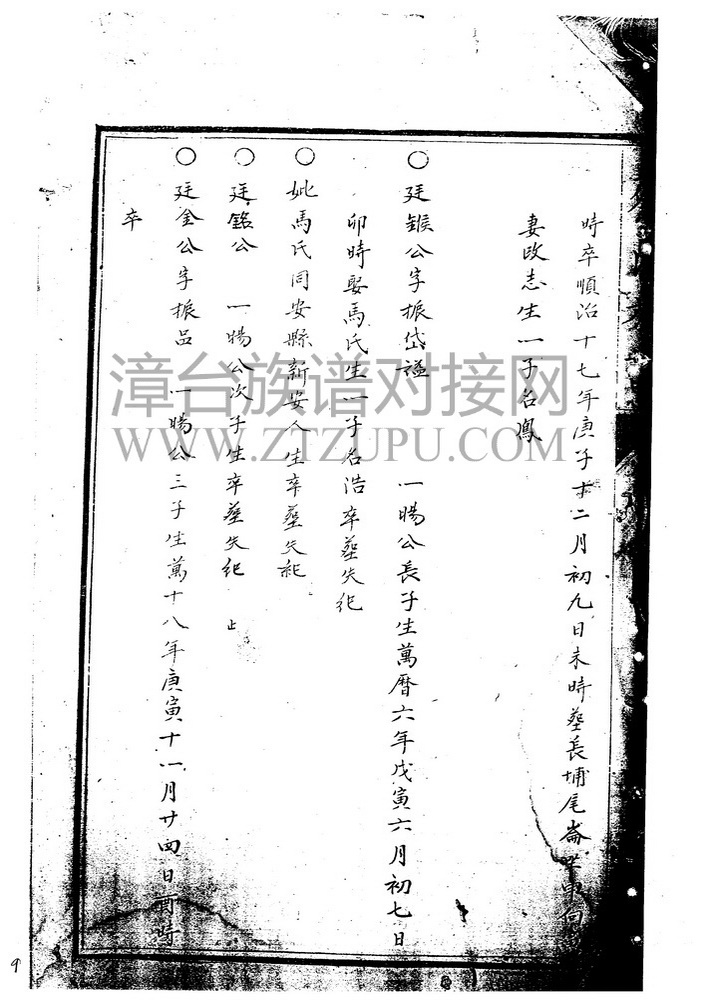 時卒順治十七年庚子十二月初九日未時塟長埔尾崙坐東向
妻改志生一子名鳳
○廷鍭公字振岱謚 一暘公長子生萬曆六年戊寅六月初七日
卯時娶馬氏生一子名浩卒塟失紀
○妣馬氏同安縣新安人生卒塟失紀
○廷銘公 一暘公次子生卒塟失紀 止
○廷金公字振品 一暘公三子生萬十八年庚寅十一月廿四日酉時
卒
漳台族谱对接网
WWW.ZTZUPU.COM
9